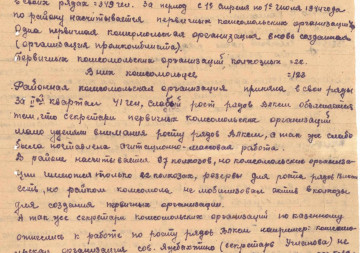 в своих рядах = 349 чел. За период с 19 апреля по 1ое июня 1944 года
по району насчитывается первичных комсомольских организаций
Одна первичная комсомольская организация вновь созданная
(организация промкомбината).
Первичных комсомольских организаций колхозных = 26
В них комсомольцев = 198
Районная комсомольская организация приняла в свои ряды
За IIой квартал 41 чел, слабый рост рядов ВЛКСМ объясняется
тем, что секретари первичных комсомольских организаций
мало уделяли внимания росту рядов ВЛКСМ, а так же слабо
была поставлена агитационно-массовая работа.
В районе насчитывается 87 колхозов, но комсомольские организа-
ции имеются только в колхозах, резервы для роста рядов
есть, но райком комсомола не мобилизовал актив в колхозы
для создания первичных организаций.
А так же секретари комсомольских организаций по казенному
отнеслись к работе по росту рядов ВЛКСМ например: комсомо-
льская организация сов. (секретарь) не